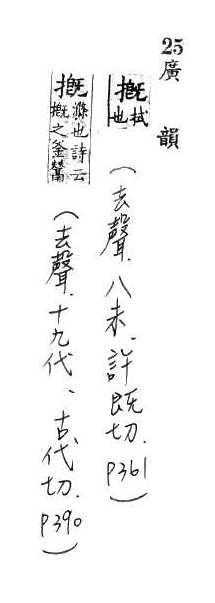 25廣韻
摡拭也(去聲.八未、許既切.P361)
摡滌也詩云摡之釜鬵(去聲.十九代、古代切.P390)